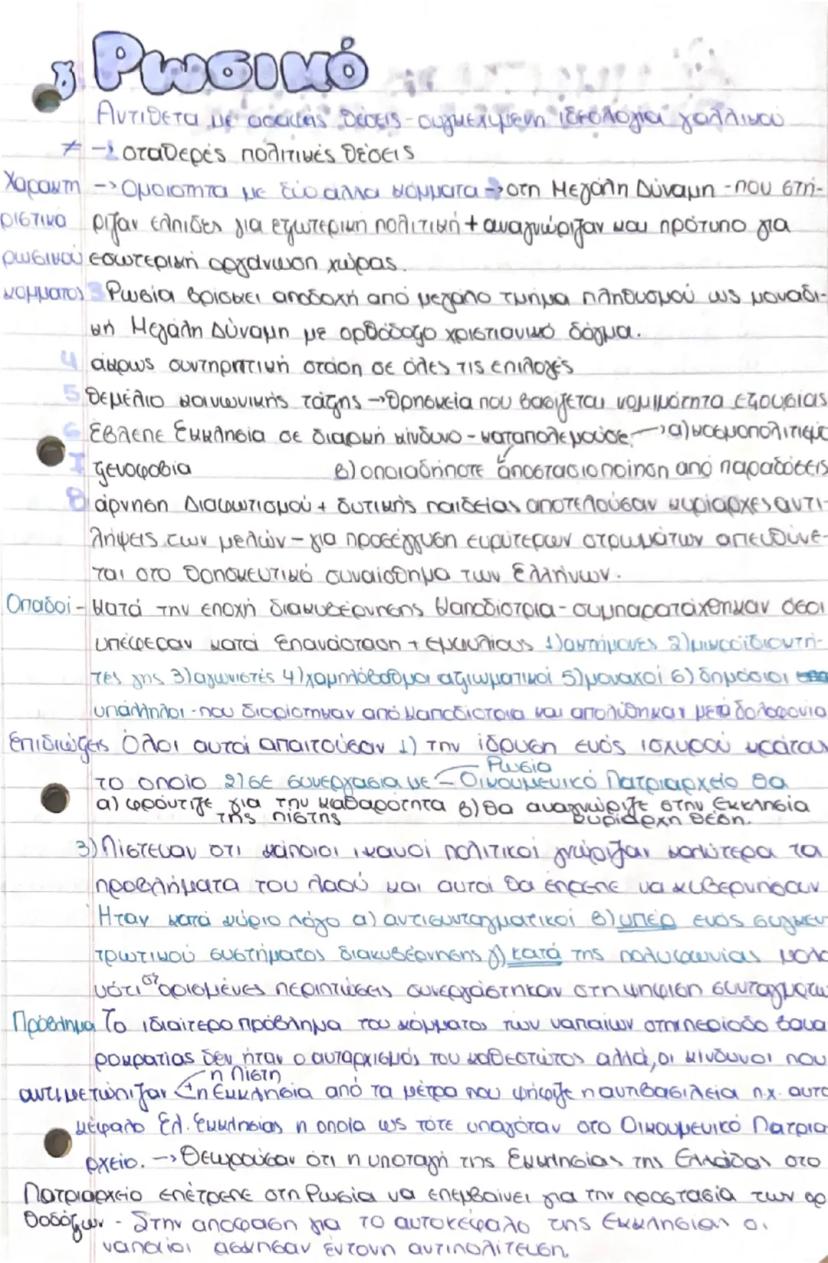 γ Ρωσικό
Αντίθετα με ασαφής θέσεις - συγκεχυμένη ιδεολογία γαλλικού
≠ → σταθερές πολιτικές θέσεις
Χαρακτη → Ομοιότητα με δύο άλλα κόμματα → στη Μεγάλη Δύναμη - που στή-
ριστικα ριζαν ελπίδες για εξωτερική πολιτική + αναγνώριζαν και πρότυπο για
ρωσικού εσωτερική οργάνωση χώρας.
κόμματος 3 Ρωσία βρίσκει αποδοχή από μεγάλο τμήμα πληθυσμού ως μοναδι-
κή Μεγάλη Δύναμη με ορθόδοξο χριστιανικό δόγμα.
4 άκρως συντηρητική στάση σε όλες τις επιλογές
5 Θεμέλιο κοινωνικής τάξης → θρησκεία που βασίζεται νομιμότητα εξουσίας
6 Έβλεπε Εκκλησία σε διαρκή κίνδυνο - καταπολεμούσε → α) κοσμοπολιτισμό
7 ξενοφοβία β) οποιαδήποτε αποστασιοποίηση από παραδόσεις
8 άρνηση Διαφωτισμού + δυτικής παιδείας αποτελούσαν κυρίαρχες αντι-
λήψεις των μελών - για προσέγγυση ευρύτερων στρωμάτων απευθύνε-
ται στο θρησκευτικό συναίσθημα των Ελλήνων.
Οπαδοί - Κατά την εποχή διακυβέρνησης Καποδίστρια - συμπαρατάχθηκαν όσοι
υπέφεραν κατά Επανάσταση + εμφυλίους 1) ακτήμονες 2) μικροϊδιοκτή-
τες γης 3) αγωνιστές 4) χαμηλόβαθμοι αξιωματικοί 5) μοναχοί 6) δημόσιοι
υπάλληλοι - που διορίστηκαν από Καποδίστρια και απολύθηκαν μετά δολοφονία
Επιδιώξεις Όλοι αυτοί απαιτούσαν 1) την ίδρυση ενός ισχυρού κράτους
Ρωσία
το οποίο 2) σε συνεργασία με - Οικουμενικό Πατριαρχείο θα
α) φρόντιζε για την καθαρότητα β) θα αναγνώριζε στην Εκκλησία
της πίστης κυρίαρχη θέση.
3) Πίστευαν ότι κάποιοι ικανοί πολιτικοί γνώριζαν καλύτερα τα
προβλήματα του λαού και αυτοί θα έπρεπε να κυβερνήσουν
Ήταν κατά κύριο λόγο α) αντισυνταγματικοί β) υπέρ ενός συγκεν
τρωτικού συστήματος διακυβέρνησης γ) κατά της πολυφωνίας μολο
νότι σε ορισμένες περιπτώσεις συνεργάστηκαν στη ψήφιση συντάγματος
Πρόβλημα Το ιδιαίτερο πρόβλημα του κόμματος των ναπαίων στην περίοδο βαυα
ροκρατίας δεν ήταν ο αυταρχισμός του καθεστώτος αλλά, οι κίνδυνοι που
η πίστη
αντιμετώπιζαν η Εκκλησία από τα μέτρα που ψήφιζε η αντιβασιλεία π.χ. αυτο
κέφαλο Ελ. Εκκλησίας η οποία ως τότε υπαγόταν στο Οικουμενικό Πατρια
ρχείο. → Θεωρούσαν ότι η υποταγή της Εκκλησίας της Ελλάδας στο
Πατριαρχείο επέτρεπε στη Ρωσία να επεμβαίνει για την προστασία των ορ
θοδόξων - Στην απόφαση για το αυτοκέφαλο της Εκκλησίας οι
ναπαίοι άσκησαν έντονη αντιπολίτευση.